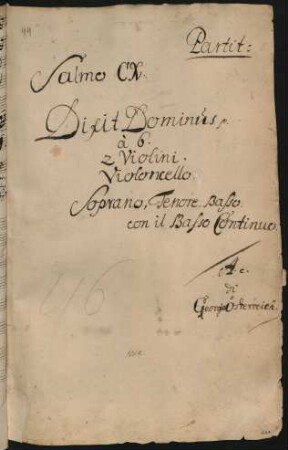 Partit:
Salmo CX.
Dixit Dominus
à 6.
2 Violini.
Violoncello.
Soprano, Tenore Basso
con il Basso Continuo.
di
Georgio Österreich